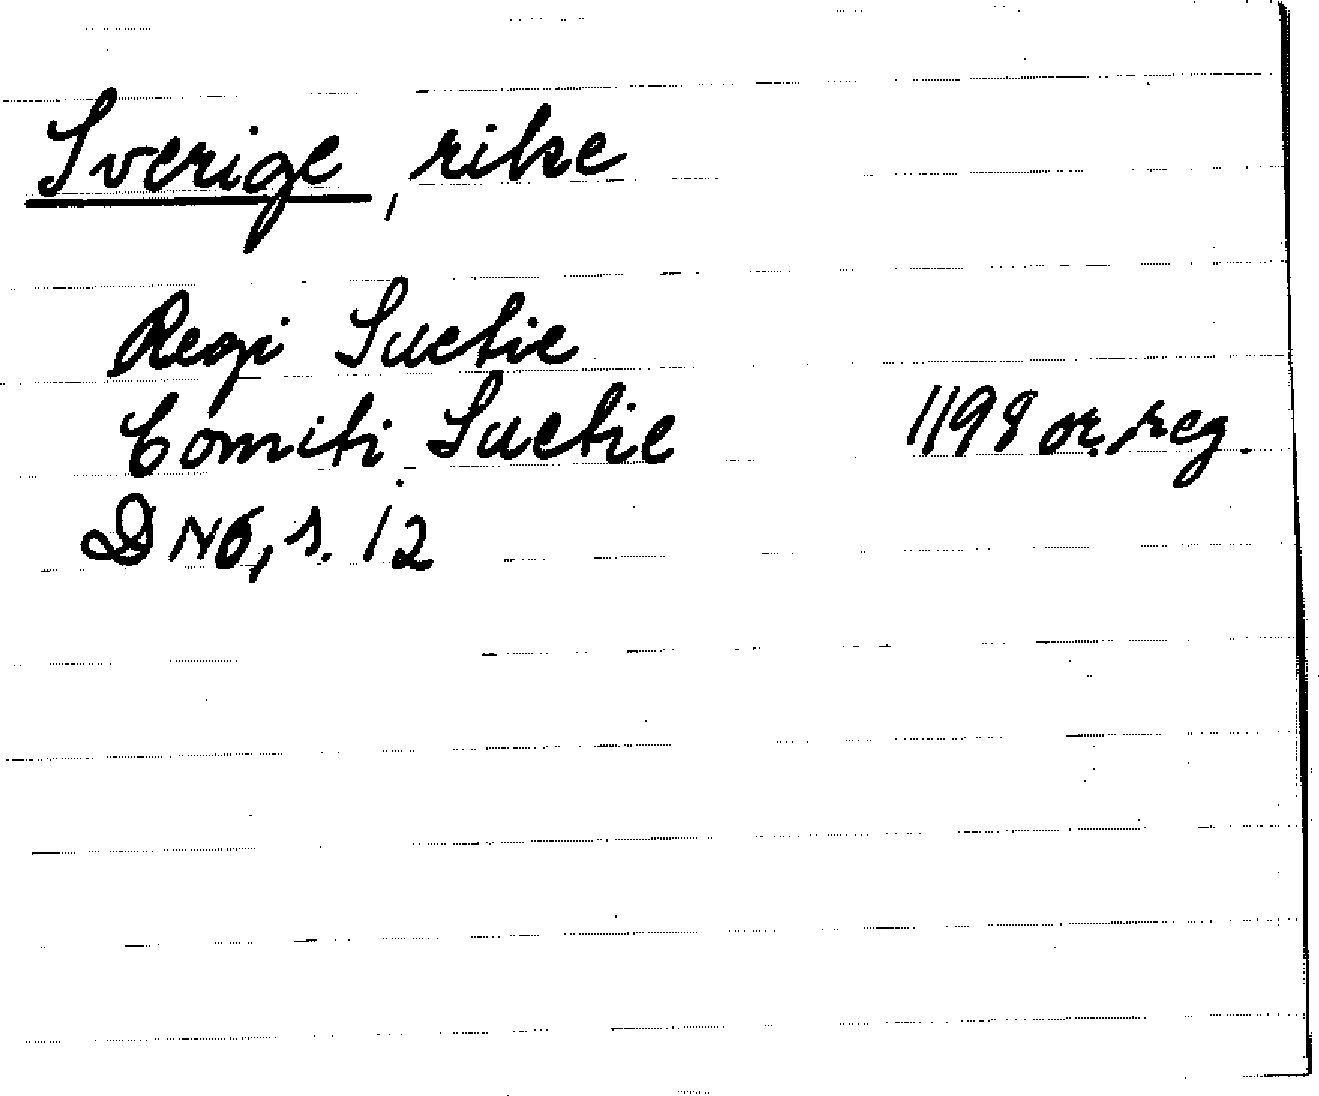 Sverige, rike
Regi Suetie
Comiti Suetie 1198 or. reg.
DN 6, s. 12